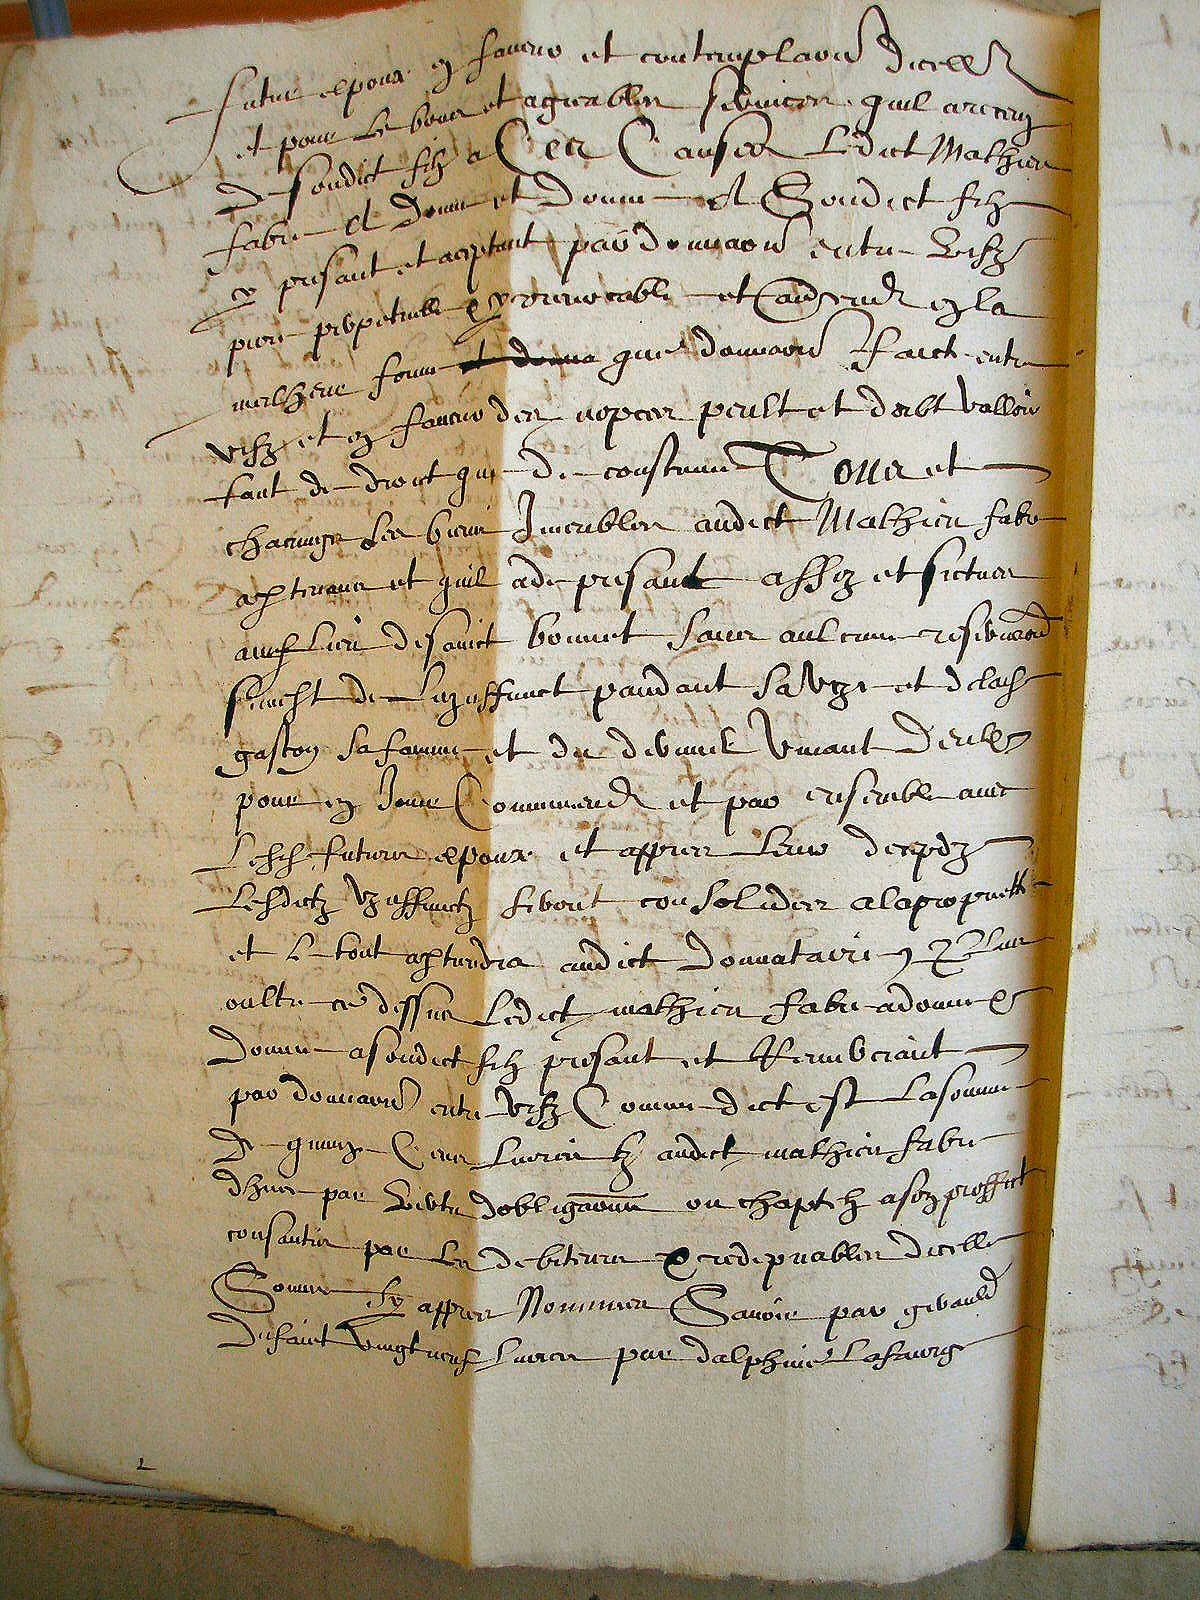 futur espoux en faveur et contemplaon dicelluy
et pour les bons et agreables services quil a receu
de sondict filz a Ces Causes Ledict Mathieu
fabre a donne et donne a Sondict filz
y presant et aceptant par donnaon entre vifz
pure perpetuelle et yrrevocable et en la
melheur forme que donnaon faicte entre
vifz et en faveur des nopces peult et doibt valloir
tant de droict que de coustume Tous et
chacungs les biens Imeubles audict Mathieu fabre
aptenans et quil a de presant assiz et sictues
aud Lieu de sainct bonnet Sans aulcune reservaon
de Luzuffruict pandant Sa vye et de
gaston Sa femme et du dernier vivant deulx
pour en Jouir Comunement et par ensemble avec
Lesd futurs espoux et appres Leur deces
Lesdictz uzuffruictz seront consolides a la proprietté
et le tout aptiendra audict donnataire
oultre ce dessus Ledict mathieu fabre a donne et
donne a sondict filz presant et Remerciant
par donnaon entre vifz Comme dict est La somme
de Cens Livres tz audict mathieu fabre
dheue par vertu dobligaonns ou a son proffict
consanties par les debiteurs et redepvables dicelle
Somme sy appres Nommes Savoir par gerauld
vingt neuf Livres par dalphine Lafarge